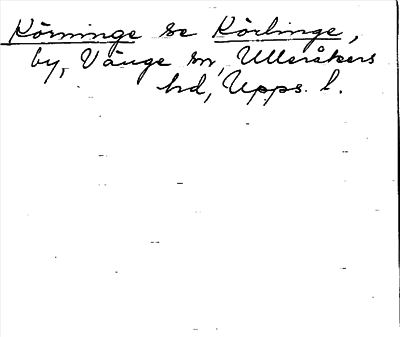 Körninge se Körlinge,
by, Vänge sn, Ulleråkers
hd, Upps. l.